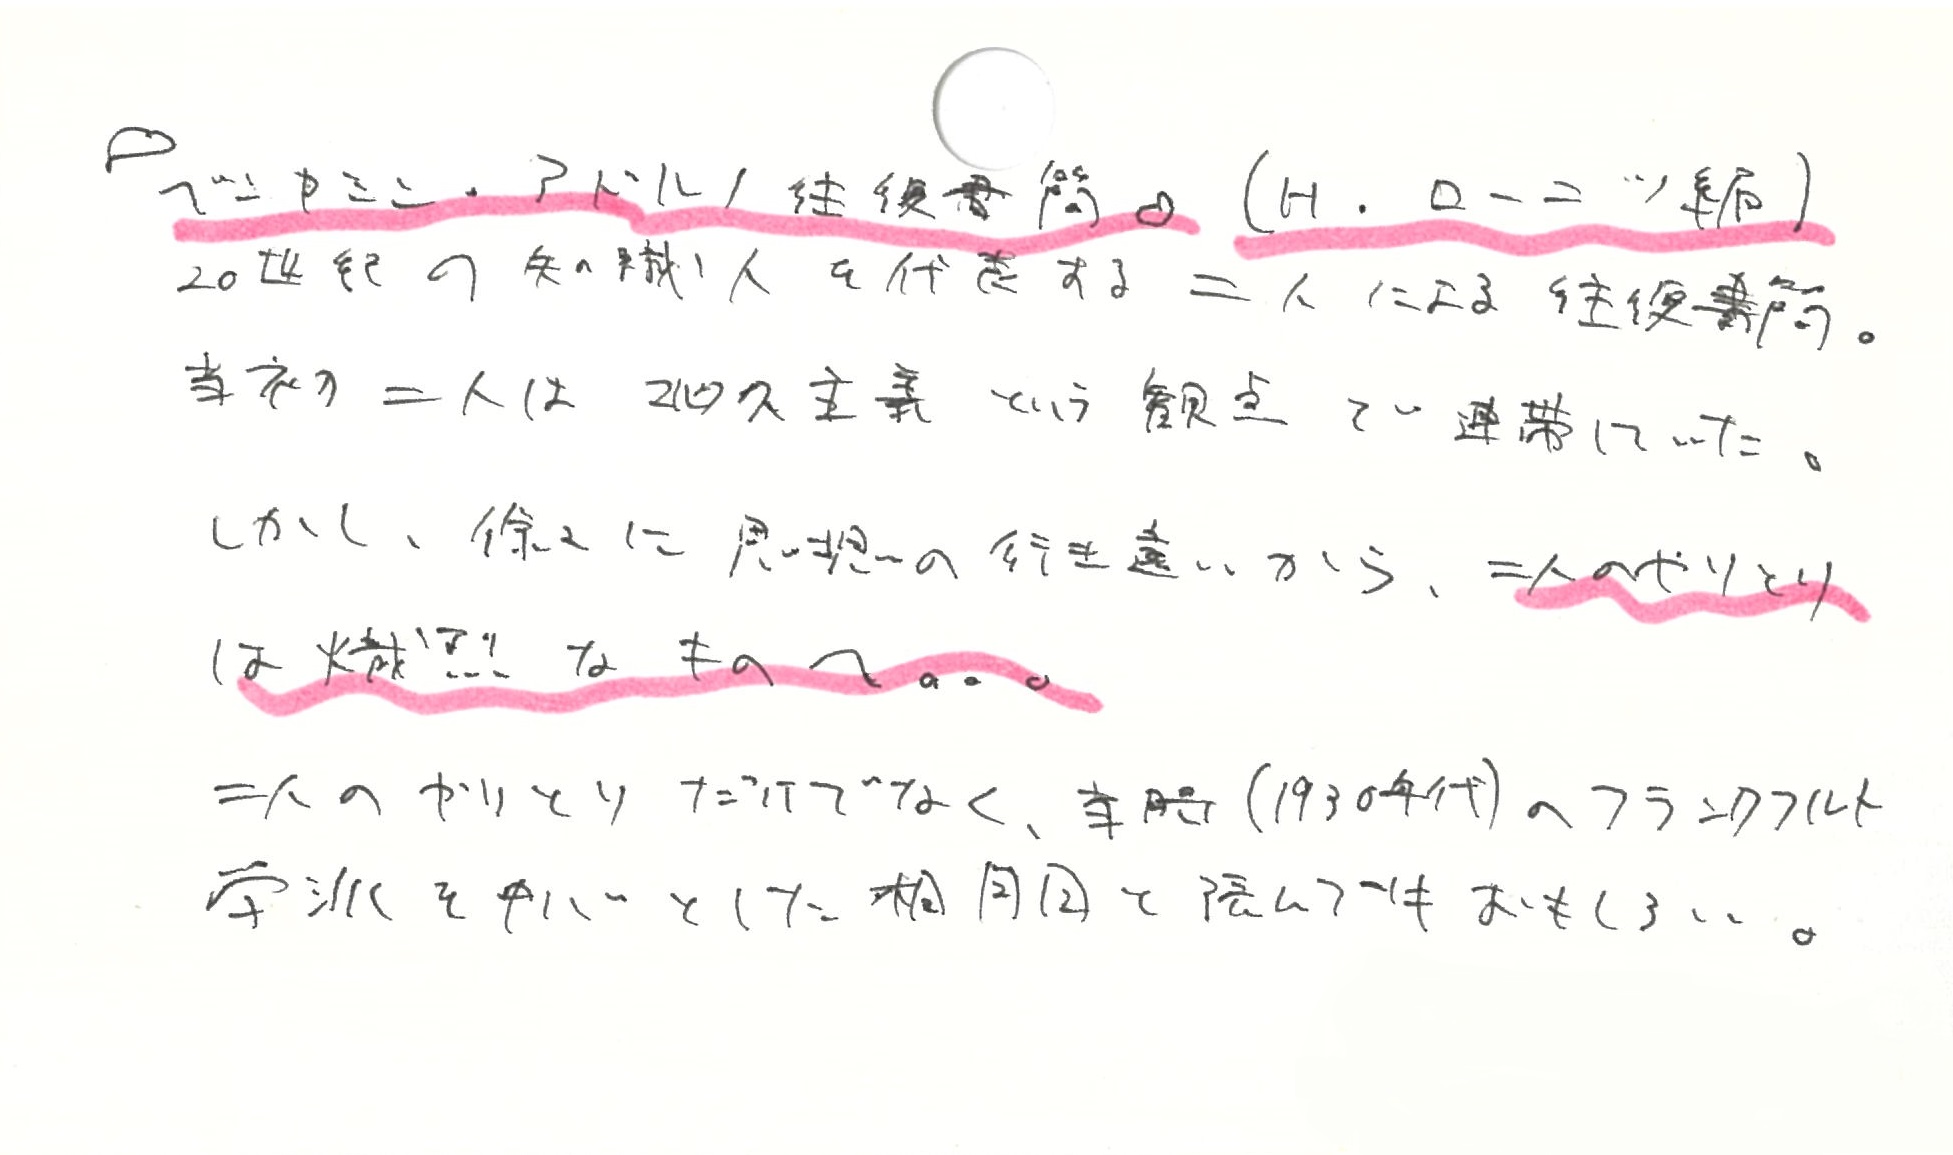 ベンヤミン・アドルノ往復書簡。(H.ローニツ編)
20世紀の知識人を代表する二人による往復書簡。
当初二人は主義という観点で連帯していた。
しかし、徐々に思想の行き違いから、二人のやりとり
は熾烈なものへ...。
二人のやりとりだけでなく、当時(1930年代)のフランクフルト
学派を中心とした相関図と読んでもおもしろい。